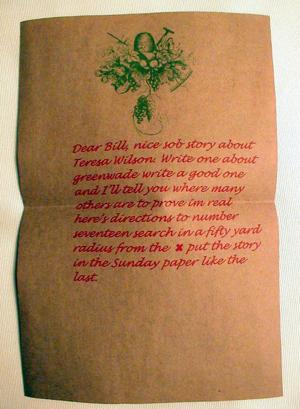 Dear Bill, nice sob story about
Teresa Wilson. Write one about
greenwade write a good one
and I'll tell you where many
others are to prove im real
here's directions to number
seventeen search in a fifty yard
radius from the x put the story
in the Sunday paper like the
last.